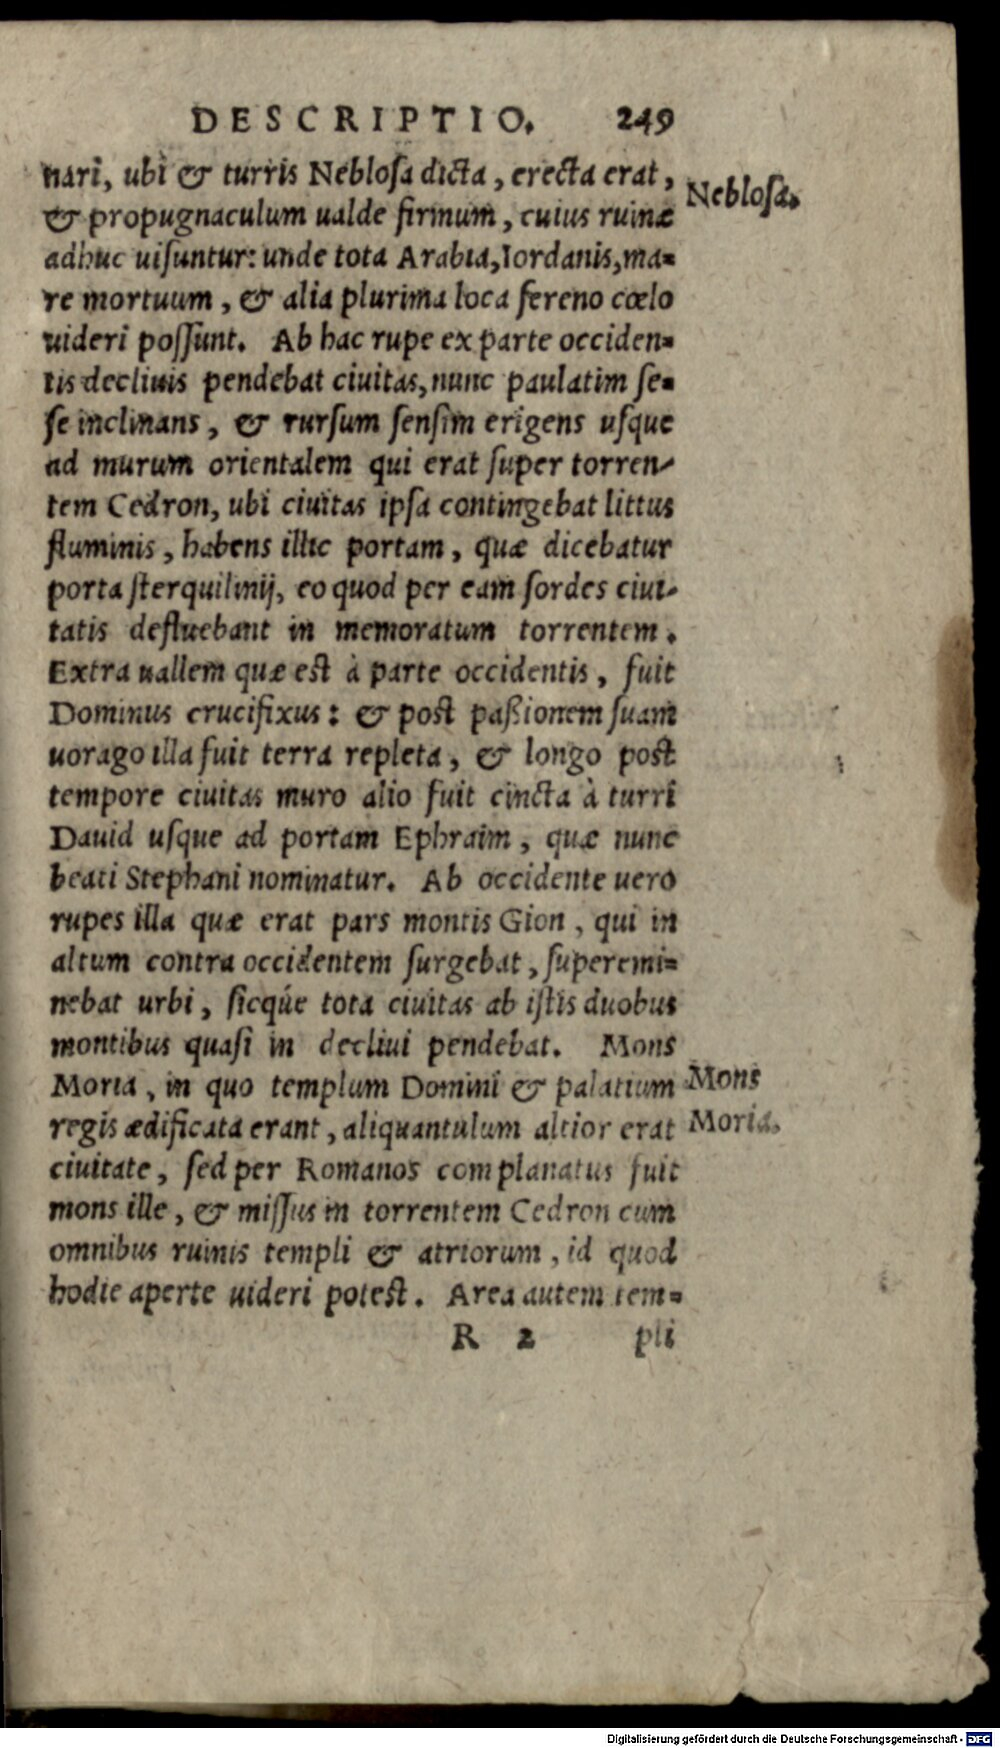 DESCRIPTIO. 249
nari, ubi & turris Neblosa dicta, erecta erat,
Neblosa.
& propugnaculum ualde firmum, cuius ruinæ
adhuc uisuntur: unde tota Arabia, Iordanis, ma=
re mortuum, & alia plurima loca sereno cœlo
uideri possunt. Ab hac rupe ex parte occiden=
tis decliuis pendebat ciuitas, nunc paulatim se=
se inclinans, & rursum sensim erigens usque
ad murum orientalem qui erat super torren-
tem Cedron, ubi ciuitas ipsa contingebat littus
fluminis, habens illic portam, quæ dicebatur
porta sterquilinij, eo quod per eam sordes ciui-
tatis defluebant in memoratum torrentem.
Extra uallem quæ est à parte occidentis, fuit
Dominus crucifixus: & post paßionem suam
uorago illa fuit terra repleta, & longo post
tempore ciuitas muro alio fuit cincta à turri
Dauid usque ad portam Ephraim, quæ nunc
beati Stephani nominatur. Ab occidente uero
rupes illa quæ erat pars montis Gion, qui in
altum contra occidentem surgebat, superemi=
nebat urbi, sicq́ue tota ciuitas ab istis duobus
montibus quasi in decliui pendebat. Mons
Moria, in quo templum Domini & palatium
Mons
regis ædificata erant, aliquantulum altior erat
Moria.
ciuitate, sed per Romanos complanatus fuit
mons ille, & missus in torrentem Cedron cum
omnibus ruinis templi & atriorum, id quod
hodie aperte uideri potest. Area autem tem=
R 2 pli
Digitalisierung gefördert durch die Deutsche Forschungsgemeinschaft - DFG